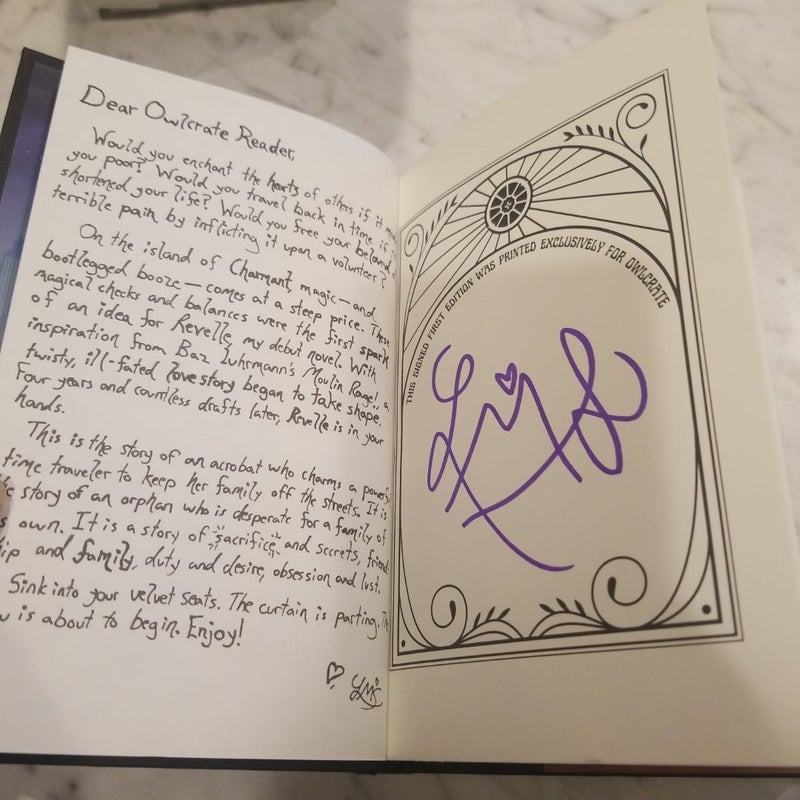 Dear Owlcrate Reader,
Would you enchant the hearts of others if it
you poor? Would you travel back in time if
shortened your life? Would you free your beloved
terrible pain by inflicting it upon a volunteer?
On the island of Charmant, magic—and
bootlegged booze—comes at a steep price. These
magical checks and balances were the first spark
of an idea for Revelle, my debut novel. With
inspiration from Baz Luhrmann's Moulin Rouge!, a
twisty, ill-fated love story began to take shape.
Four years and countless drafts later, Revelle is in your
hands.
This is the story of an acrobat who charms a
time traveler to keep her family off the streets. It is
story of an orphan who is desperate for a family of
own. It is a story of sacrifice and secrets,
and family, duty and desire, obsession and lust.
Sink into your velvet seats. The curtain is parting.
is about to begin. Enjoy!
LMS
THIS SIGNED FIRST EDITION WAS PRINTED EXCLUSIVELY FOR OWLCRATE